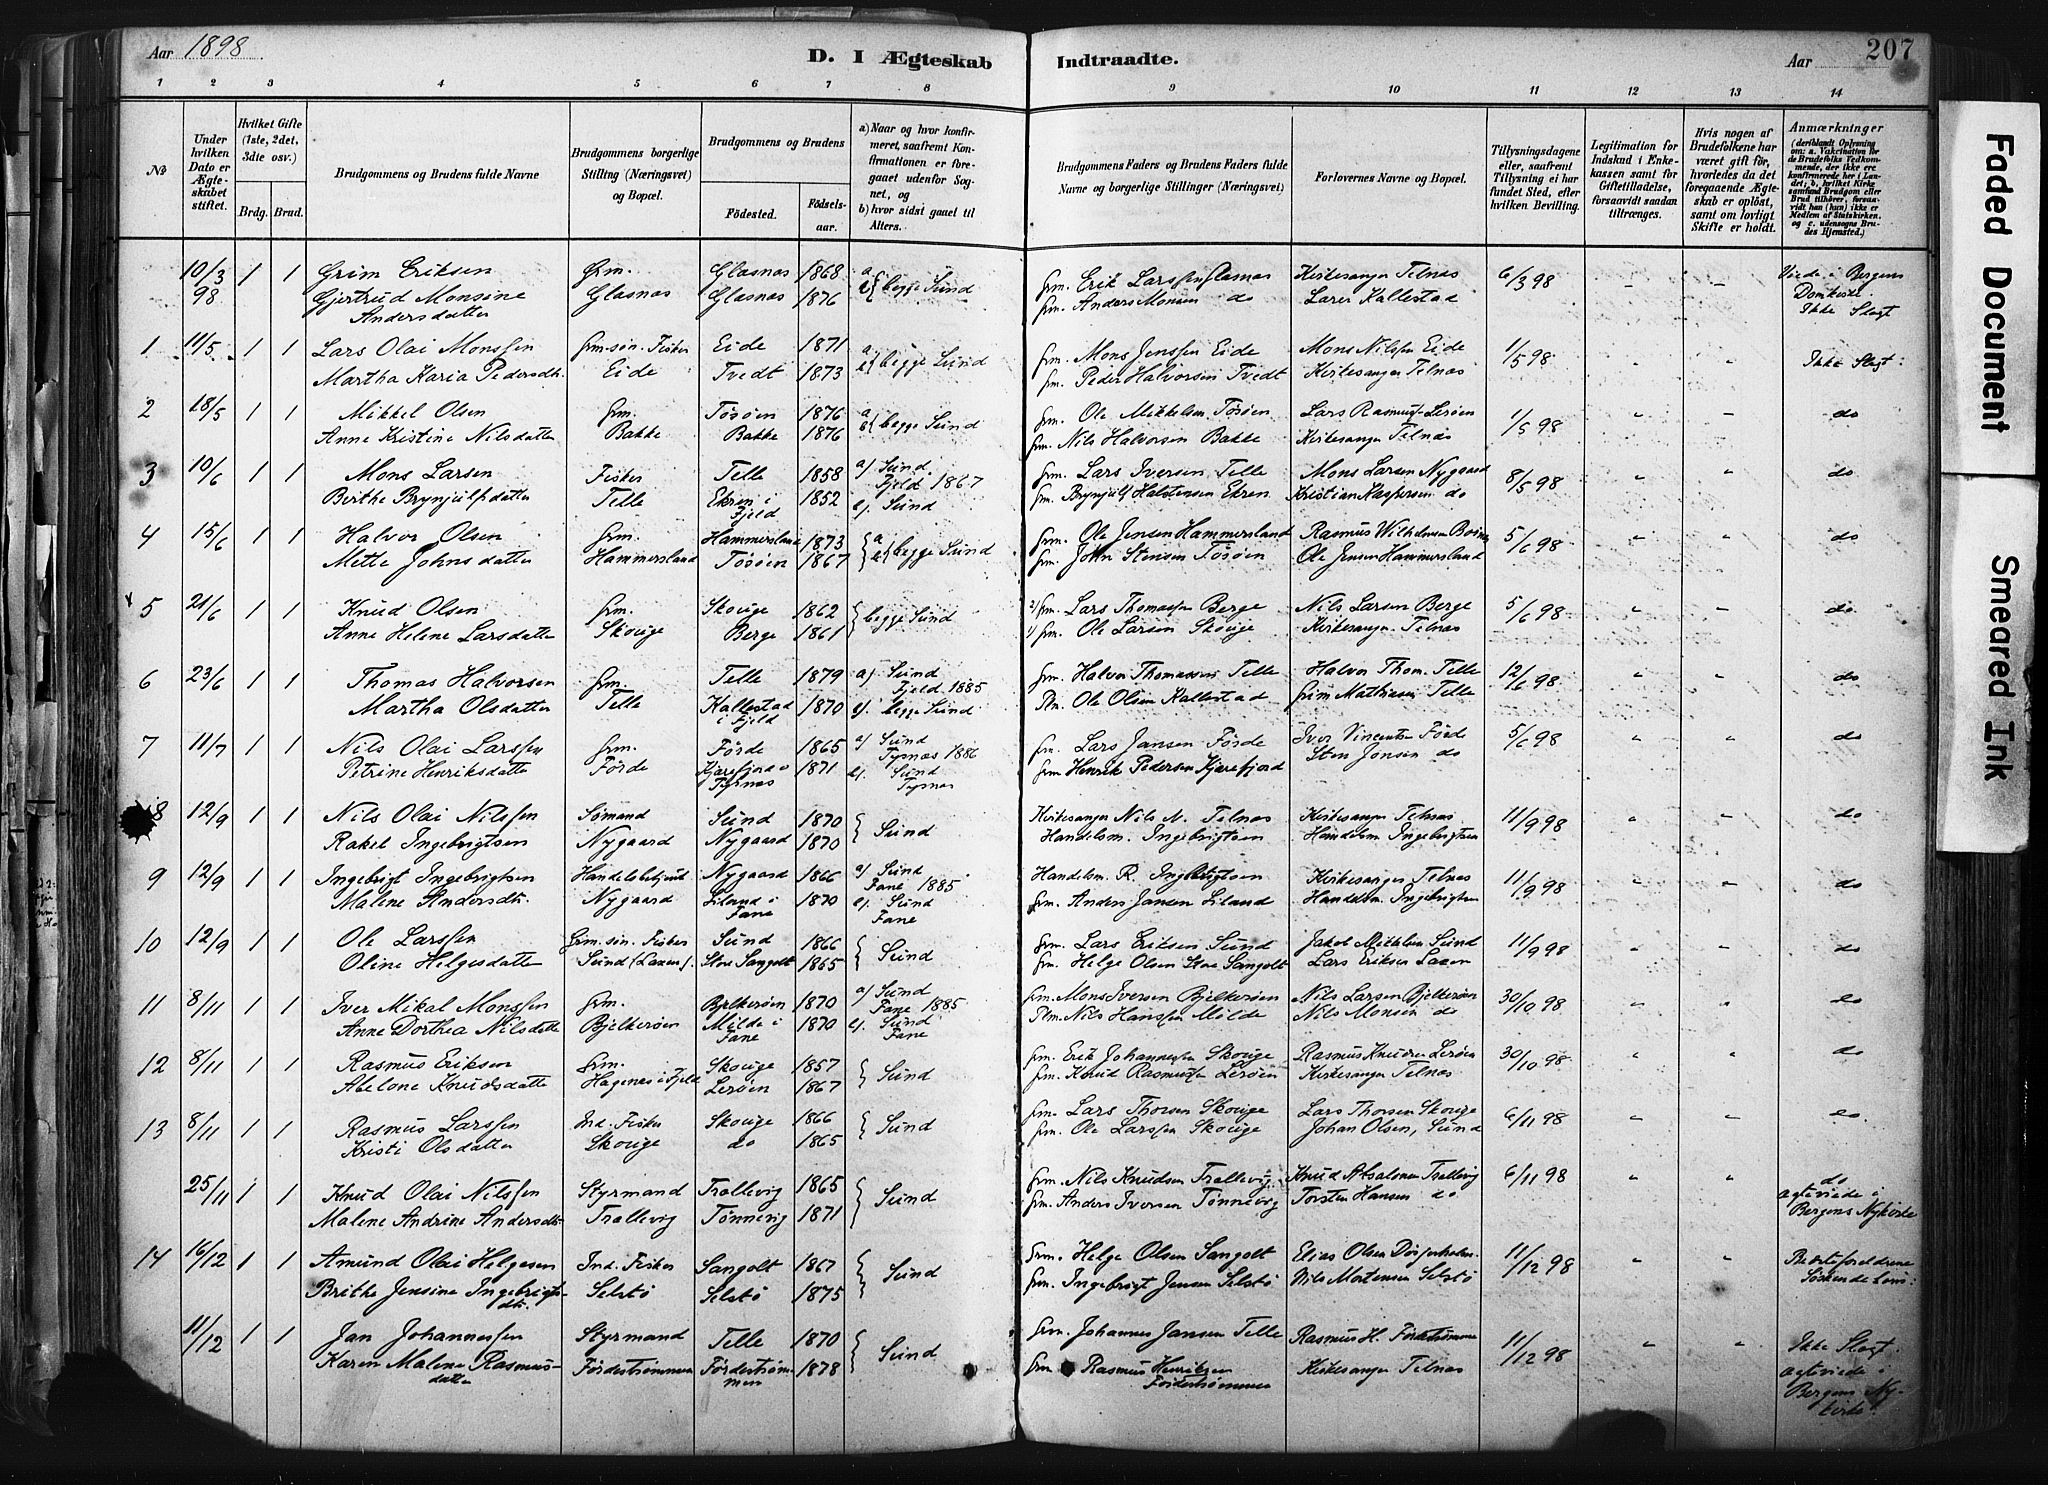 Aar 1898
D. I Ægteskab
Indtraadte.
Aar
207
1 2 3 4 5 6 7 8 9 10 11 12 13 14
No
Under hvilken Dato er Ægteskabet stiftet.
Hvilket Gifte (1ste, 2det, 3die osv.)
Brdg. Brud.
Brudgommens og Brudens fulde Navne
Brudgommens borgerlige Stilling (Næringsvei) og Bopæl.
Brudgommens og Brudens
Födested.
Födsels-aar.
a) Naar og hvor konfirmeret, saafremt Konfirmationen er foregaaet udenfor Sognet, og
b) hvor sidst gaaet til Alters.
Brudgommens Faders og Brudens Faders fulde Navne og borgerlige Stillinger (Næringsvei)
Forlovernes Navne og Bopæl.
Tillysningsdagene eller, saafremt Tillysning ei har fundet Sted, efter hvilken Bevilling.
Legitimation for Indskud i Enkekassen samt for Giftetilladelse, forsaavidt saadan tiltrænges.
Hvis nogen af Brudefolkene har været gift för, hvorledes da det foregaaende Ægteskab er oplöst, samt om lovligt Skifte er holdt.
Anmærkninger (deriblandt Oplysning om: a. Vakcination for de Brudefolks Vedkommende, der ikke ere konfirmerede her i Landet; b. hvilket Kirkesamfund Brudgom eller Brud tilhörer, forsaavidt han (hun) ikke er Medlem af Statskirken, og c. udensogns Brudes Hjemsted.)
10/3 98 1 1 Grim Eriksen Grm. Glasnæs 1868 a begge Sund Grm. Erik Larssen Glasnæs Kirkesanger Telnæs 6/3 98 " " Viede i Bergens
Gjertrud Monsine Glasnæs Glasnæs 1876 Grm. Anders Monsen do Kallestad Domkirke
Andersdatter Ikke Slægt
1 11/5 1 1 Lars Olai Monssen Grm. søn. Fisker Eide 1871 a begge Sund Grm. Mons Jenssen Eide Mons Nilssen Eide 1/5 98 " " Ikke Slægt.
Martha Karia Pedersdt. Eide Tvedt 1873 Grm. Peder Halvorsen Tvedt Kirkesanger Telnæs
2 18/5 1 1 Mikkel Olsen Grm. Tøsøen 1876 a begge Sund Grm. Ole Mikkelsen Tøsøen Lars Rasmuss. Lerøen 1/5 98 " " do
Anne Kristine Nilsdatter Bakke Bakke 1876 Grm. Nils Halvorsen Bakke Kirkesanger Telnæs
3 10/6 1 1 Mons Larsen Fisker Telle 1858 a) Sund Grm. Lars Iversen Telle Mons Larsen Nygaard 8/5 98 " " do
Berthe Brynjülfsdatter Telle Ekren i Fjeld 1852 Fjeld 1867 Sund Grm. Brynjülf Halstensen Ekren Kristian Kaspersen do
4 15/6 1 1 Halvor Olsen Grm. Hammersland 1873 a begge Sund Grm. Ole Jensen Hammersland Rasmus Wilhelmsen 5/6 98 " " do
Mette Johnsdatter Hammersland Tøsøen 1867 Grm. John Stensen Tøsøen Ole Jensen Hammersland
5 21/6 1 1 Knud Olsen Grm. Skouge 1862 begge Sund 2) Grm. Lars Thomassen Berge Nils Larsen Berge 5/6 98 " " do
Anne Helene Larsdatter Skouge Berge 1861 1) Grm. Ole Larsen Skouge Kirkesanger Telnæs
6 23/6 1 1 Thomas Halvorsen Grm. Telle 1879 a) Sund Fjeld 1885 Grm. Halvor Thomassen Telle Halvor Thom. Telle 12/6 98 " " do
Martha Olsdatter Telle Kallestad i Fjeld 1870 begge Sund Plm. Ole Olsen Kallestad Grim Mathiasen Telle
7 11/7 1 1 Nils Olai Larssen Grm. Førde 1865 a) Sund Tysnæs 1886 Grm. Lars Jansen Førde Iver Vincentsen Førde 5/6 98 " " do
Petrine Henriksdatter Førde Kjærefjord i Tysnæs 1871 Sund Tysnæs Grm. Henrik Pedersen Kjærefjord Sten Jonsen do
8 12/9 1 1 Nils Olai Nilssen Sømand Sund 1870 Sund Kirkesanger Nils N. Telnæs Kirkesanger Telnæs 11/9 98 " " do
Rakel Ingebrigtsen Nygaard Nygaard 1870 Handelsm. Ingebrigtsen Handelsm Ingebrigtsen
9 12/9 1 1 Ingebrigt Ingebrigtsen Handelsbetjent Nygaard 1866 a) Sund Fane 1885 Handelsm. R. Ingebrigtsen Kirkesanger Telnæs 11/9 98 " " do
Malene Andersdt. Nygaard Liland i Fane 1870 Sund Fane Grm. Anders Jansen Liland Handelsm. Ingebrigtsen
10 12/9 1 1 Ole Larssen Grm. søn. Fisker Sund 1866 Sund Grm. Lars Eriksen Sund Jakob Mikkelsen Sund 11/9 98 " " do
Oline Helgesdatter Sund (Laxen). Store Sangolt 1865 Grm. Helge Olsen Store Sangolt Lars Eriksen Laxen
11 8/11 1 1 Iver Mikal Monssen Grm. Bjelkerøen 1870 a) Sund Fane 1885 Grm. Mons Iversen Bjelkerøen Nils Larsen Bjelkerøen 30/10 98 " " do
Anne Dorthea Nilsdatter Bjelkerøen Milde i Fane 1870 Sund Fane Plm. Nils Hanssen Milde Nils Monsen do
12 8/11 1 1 Rasmus Eriksen Grm. Skouge 1857 Sund Grm. Erik Johannessen Skouge Rasmus Knudsen Lerøen 30/10 98 " " do
Abelone Knudsdatter Hagenæs i Fjeld Lerøen 1867 Grm. Knud Rasmussen Lerøen Kirkesanger Telnæs
13 8/11 1 1 Rasmus Larssen Ind. Fisker Skouge 1866 Sund Grm. Lars Thorsen Skouge Lars Thorsen Skouge 6/11 98 " " do
Kristi Olsdatter Skouge do 1865 Grm. Ole Larssen Skouge Johan Olsen, Sund
25/11 1 1 Knud Olai Nilssen Styrmand Trællevig 1865 Sund Grm. Nils Knudsen Trællevig Knud Absalonsen Trællevig 6/11 98 " " do
Malene Andrine Andersdt. Trællevig Tønnevig 1871 Grm. Anders Iversen Tønnevig Torsten Hansen do ægteviede i Bergens Nykirke
14 16/12 1 1 Amund Olai Helgesen Ind. Fisker Sangolt 1867 Sund Grm. Helge Olsen Sangolt Elias Olsen 11/12 98 " " Bedsteforældrene
Brithe Jensine Ingebrigtsdt. Selstø Selstø 1875 Grm. Ingebrigt Jensen Selstø Nils Mortensen Selstø Søskende
11/12 1 1 Jan Johannessen Styrmand Telle 1870 Sund Grm. Johannes Jansen Telle Rasmus H. Førdestrømmen 11/12 98 " " Ikke Slægt.
Karen Malene Rasmusdatter Førdestrømmen Førdestrømmen 1878 Grm Rasmus Henriksen Førdestrømmen Kirkesanger Telnæs ægteviede i Bergens Nykirke.
Faded Document
Smeared Ink